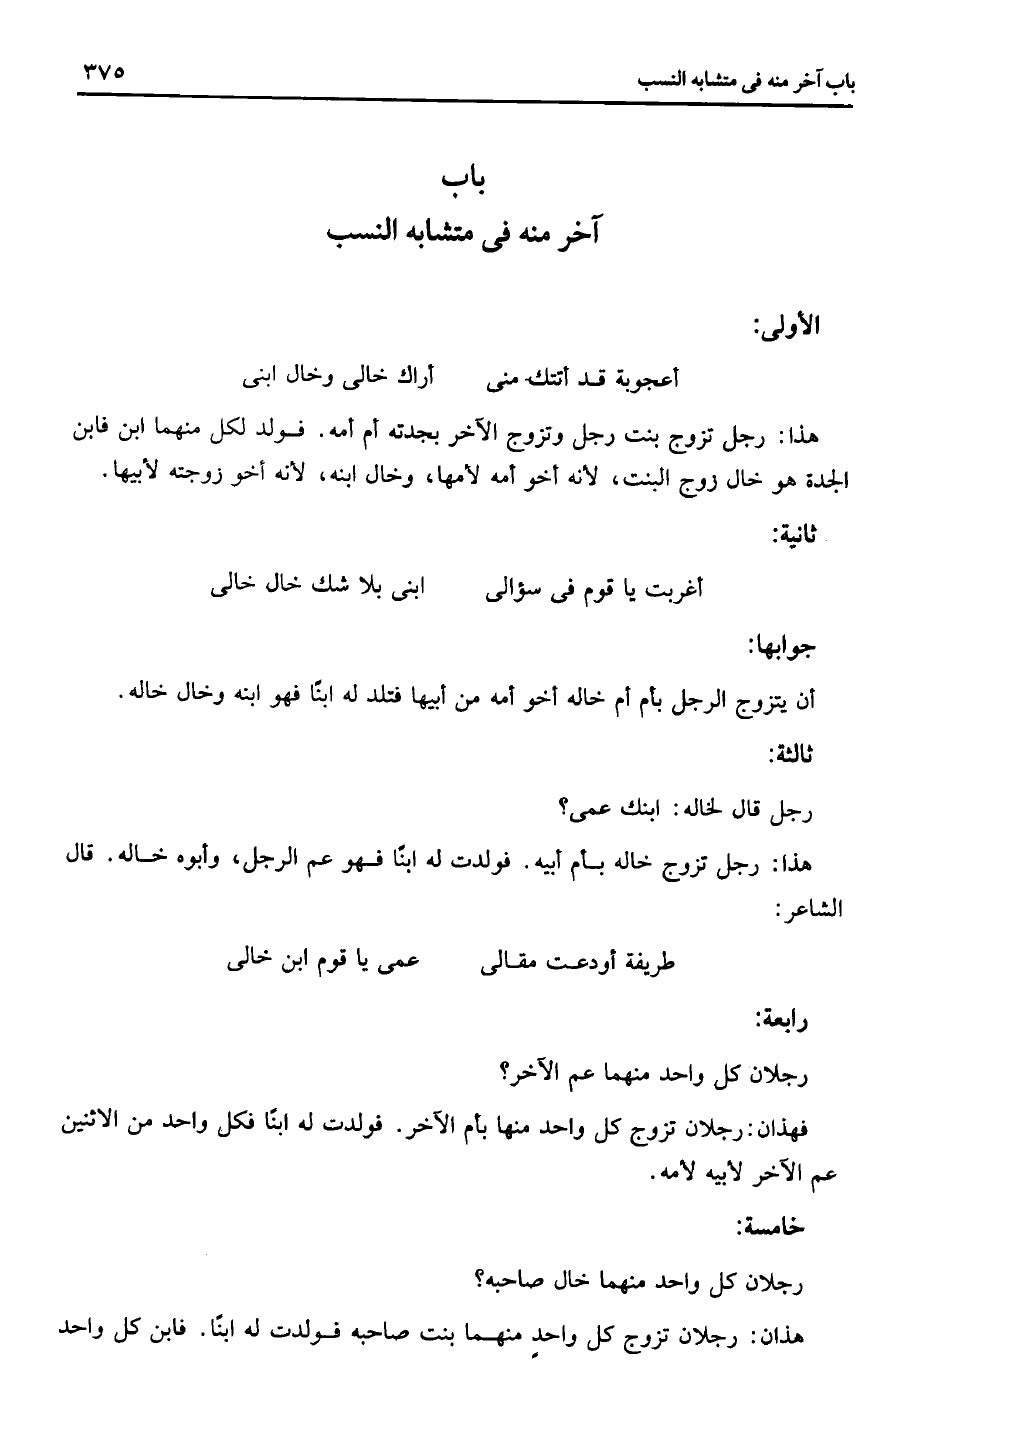 باب آخر منه فى متشابه النسب ٣٧٥
باب
آخر منه فى متشابه النسب
الأولى:
أعجوبة قـد أتتك منى أراك خالى وخال ابنى
هذا: رجل تزوج بنت رجل وتزوج الآخر بجدته أم أمه. فـولد لكل منهما ابن فابن
الجدة هو خال زوج البنت، لأنه أخو أمه لأمها، وخال ابنه، لأنه أخو زوجته لأبيها.
ثانية:
أغربت يا قوم فى سؤالى ابنى بلا شك خال خالى
جوابها:
أن يتزوج الرجل بأم أم خاله أخو أمه من أبيها فتلد له ابنًا فهو ابنه وخال خاله.
ثالثة:
رجل قال لخاله: ابنك عمى؟
هذا: رجل تزوج خاله بـأم أبيه. فولدت له ابنًا فـهو عم الرجل، وأبوه خـاله. قال
الشاعر:
طريفة أودعـت مقـالى عمى يا قوم ابن خالى
رابعة:
رجلان كل واحد منهما عم الآخر؟
فهذان: رجلان تزوج كل واحد منها بأم الآخر. فولدت له ابنًا فكل واحد من الاثنين
عم الآخر لأبيه لأمه.
خامسة:
رجلان كل واحد منهما خال صاحبه؟
هذان: رجلان تزوج كل واحدٍ منهـما بنت صاحبه فـولدت له ابنًا. فابن كل واحد